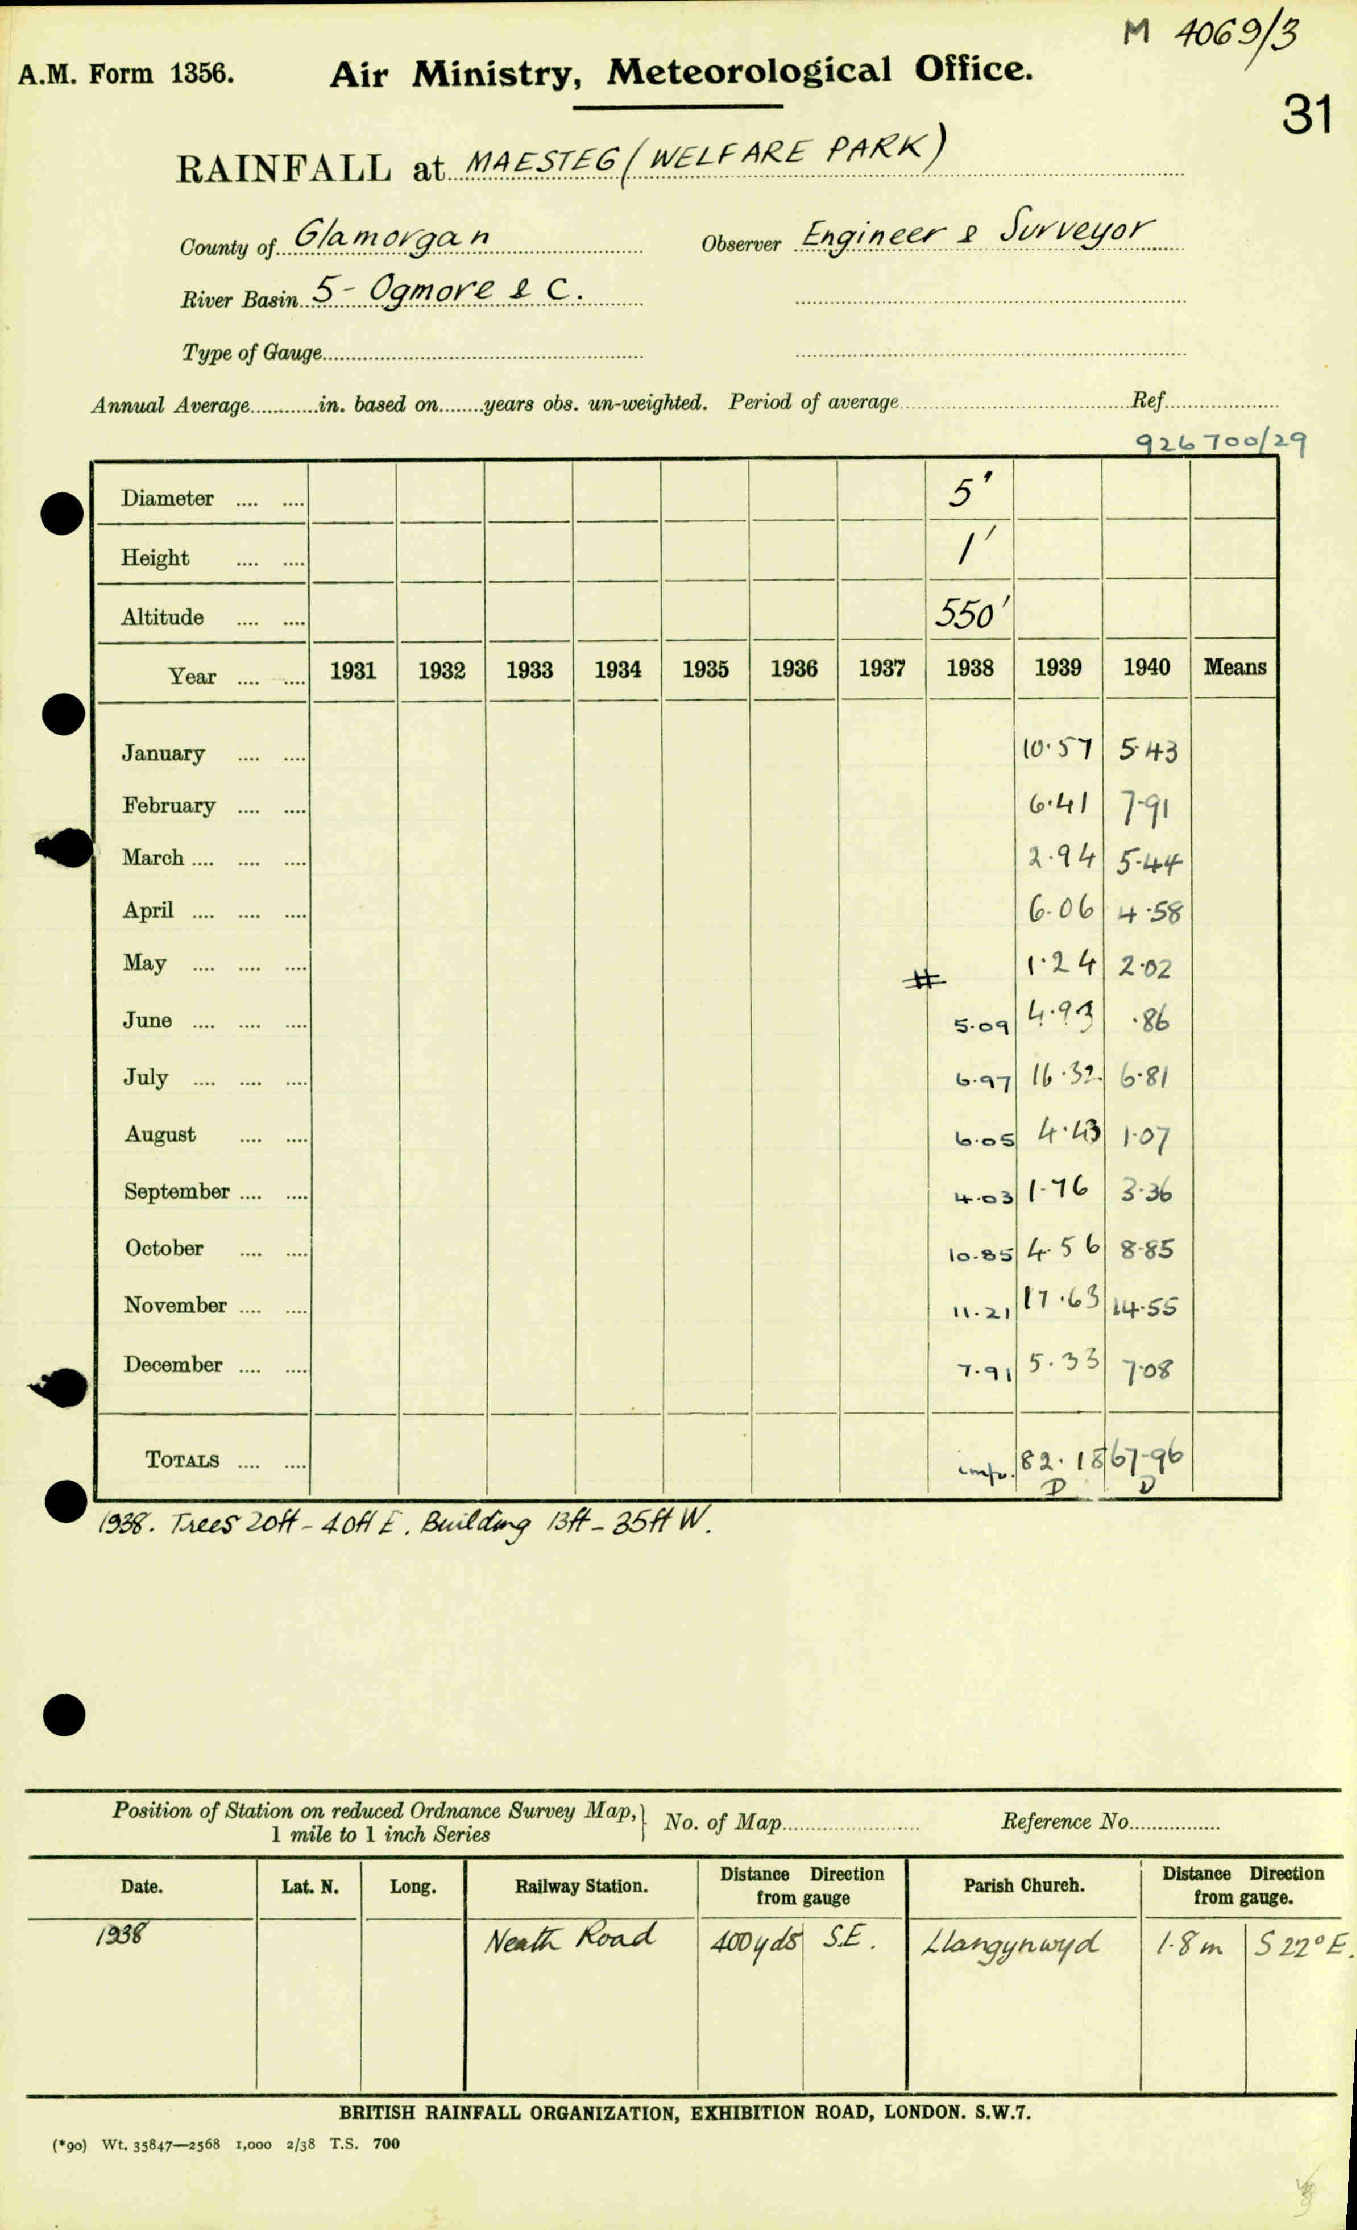 M 4069/3
A.M. Form 1356. Air Ministry, Meteorological Office.
31
RAINFALL at MAESTEG (WELFARE PARK)
County of Glamorgan Observer Engineer & Surveyor
River Basin 5 - Ogmore & C.
Type of Gauge
Annual Average in. based on years obs. un-weighted. Period of average Ref.
926700/29
Diameter 5"
Height 1'
Altitude 550'
Year 1931 1932 1933 1934 1935 1936 1937 1938 1939 1940 Means
January 10.57 5.43
February 6.41 7.91
March 2.94 5.44
April 6.06 4.58
May 1.24 2.02
June 5.09 4.93 .86
July 6.97 16.32 6.81
August 6.05 4.43 1.07
September 4.03 1.76 3.36
October 10.85 4.56 8.85
November 11.21 17.63 14.55
December 7.91 5.33 7.08
TOTALS 82.18 67.96
D D
1938. Trees 20ft - 40ft E. Building 13ft - 35ft W.
Position of Station on reduced Ordnance Survey Map, No. of Map Reference No.
1 mile to 1 inch Series
Date. Lat. N. Long. Railway Station. Distance Direction from gauge Parish Church. Distance Direction from gauge.
1938 Neath Road 400yds S.E. Llangynwyd 1.8m S 22° E.
BRITISH RAINFALL ORGANIZATION, EXHIBITION ROAD, LONDON. S.W.7.
(*90) Wt. 35847—2568 1,000 2/38 T.S. 700